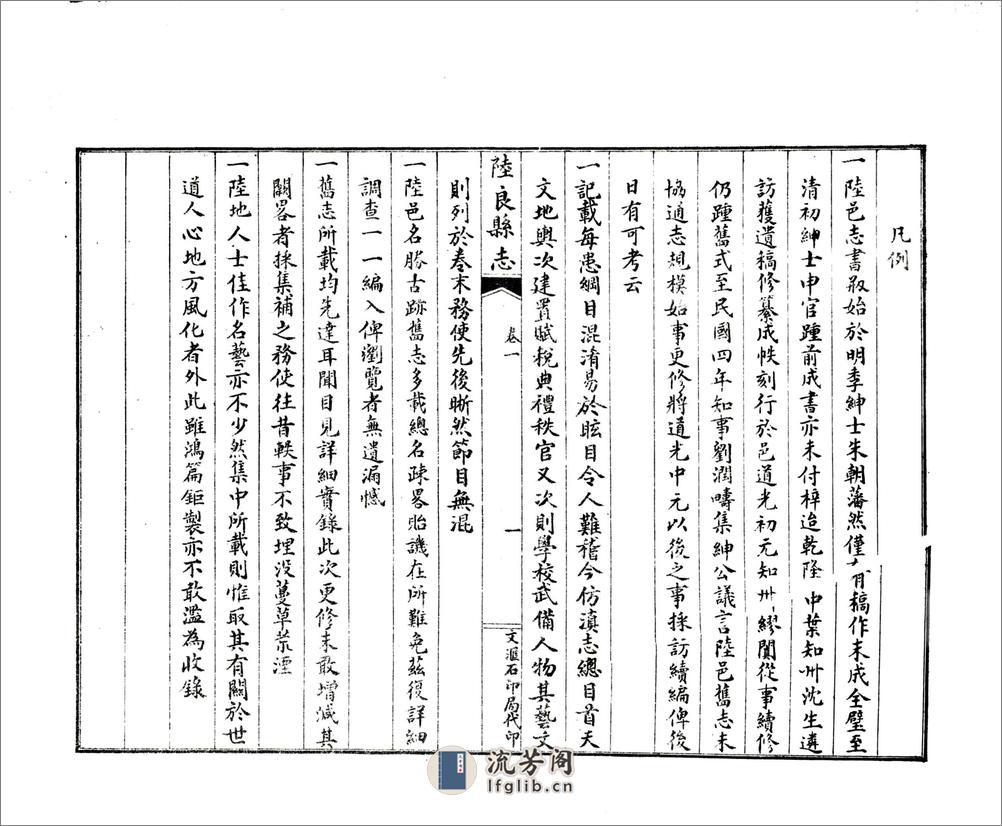 凡例
一陸邑志書㪅始於明季紳士朱朝藩然僅有稿作未成全璧至
清初紳士申官踵前成書亦未付梓迨乾隆中葉知州沈生遴
訪獲遺稿修纂成帙刻行於邑道光初元知州繆閬從事續修
仍踵舊式至民國四年知事劉潤疇集紳公議言陸邑舊志未
協通志規模始事更修將道光中元以後之事採訪續編俾後
日有可考云
一記載每患綱目混淆易於眩目令人難稽今仿滇志總目首天
文地輿次建置賦稅典禮秩官又次則學校武備人物其藝文
則列於卷末務使先後晰然節目無混
陸良縣志
卷一
一
文滙石印局代印
一陸邑名勝古跡舊志多載總名疎畧貽譏在所難免茲復詳細
調查一一編入俾瀏覽者無遺漏憾
一舊志所載均先達耳聞目見詳細實錄此次更修未敢增減其
闕畧者採集補之務使往昔軼事不致埋没蔓草荒湮
一陸地人士佳作名藝亦不少然集中所載則惟取其有關於世
道人心地方風化者外此雖鴻篇鉅製亦不敢濫為收錄
流芳阁
lfglib.cn